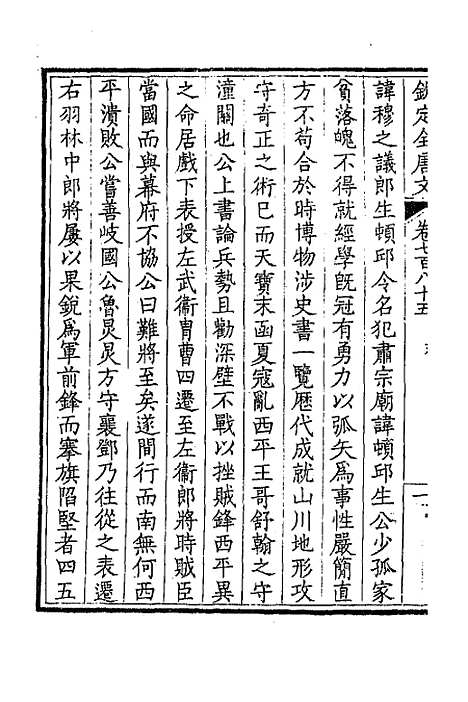 欽定全唐文 卷七百八十五
諱穆之議郎生頓邱令名犯肅宗廟諱頓邱生公少孤家
貧落魄不得就經學旣冠有勇力以弧矢爲事性嚴簡直
方不苟合於時博物涉史書一覽歷代成就山川地形攻
守奇正之術巳而天寶末函夏寇亂西平王哥舒翰之守
潼關也公上書論兵勢且勸深壁不戰以挫賊鋒西平異
之命居戲下表授左武衞胄曹四遷至左衞郎將時賊臣
當國而與幕府不協公曰難將至矣遂間行而南無何西
平潰敗公嘗善岐國公魯炅炅方守襄鄧乃往從之表遷
右羽林中郎將屢以果銳爲軍前鋒而搴旗陷堅者四五